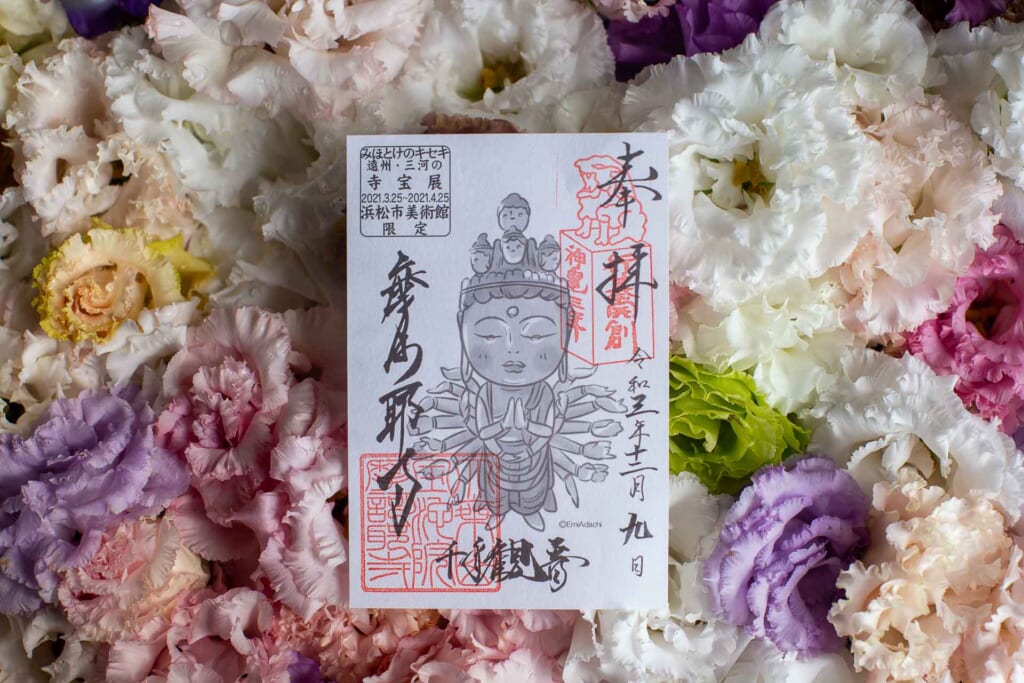 みほとけのキセキ
遠州・三河の
寺宝展
2021.3.25~2021.4.25
浜松市美術館
限定
奉拝
令和三年十二月九日
摩訶耶寺
千手観音
©EmiAdachi